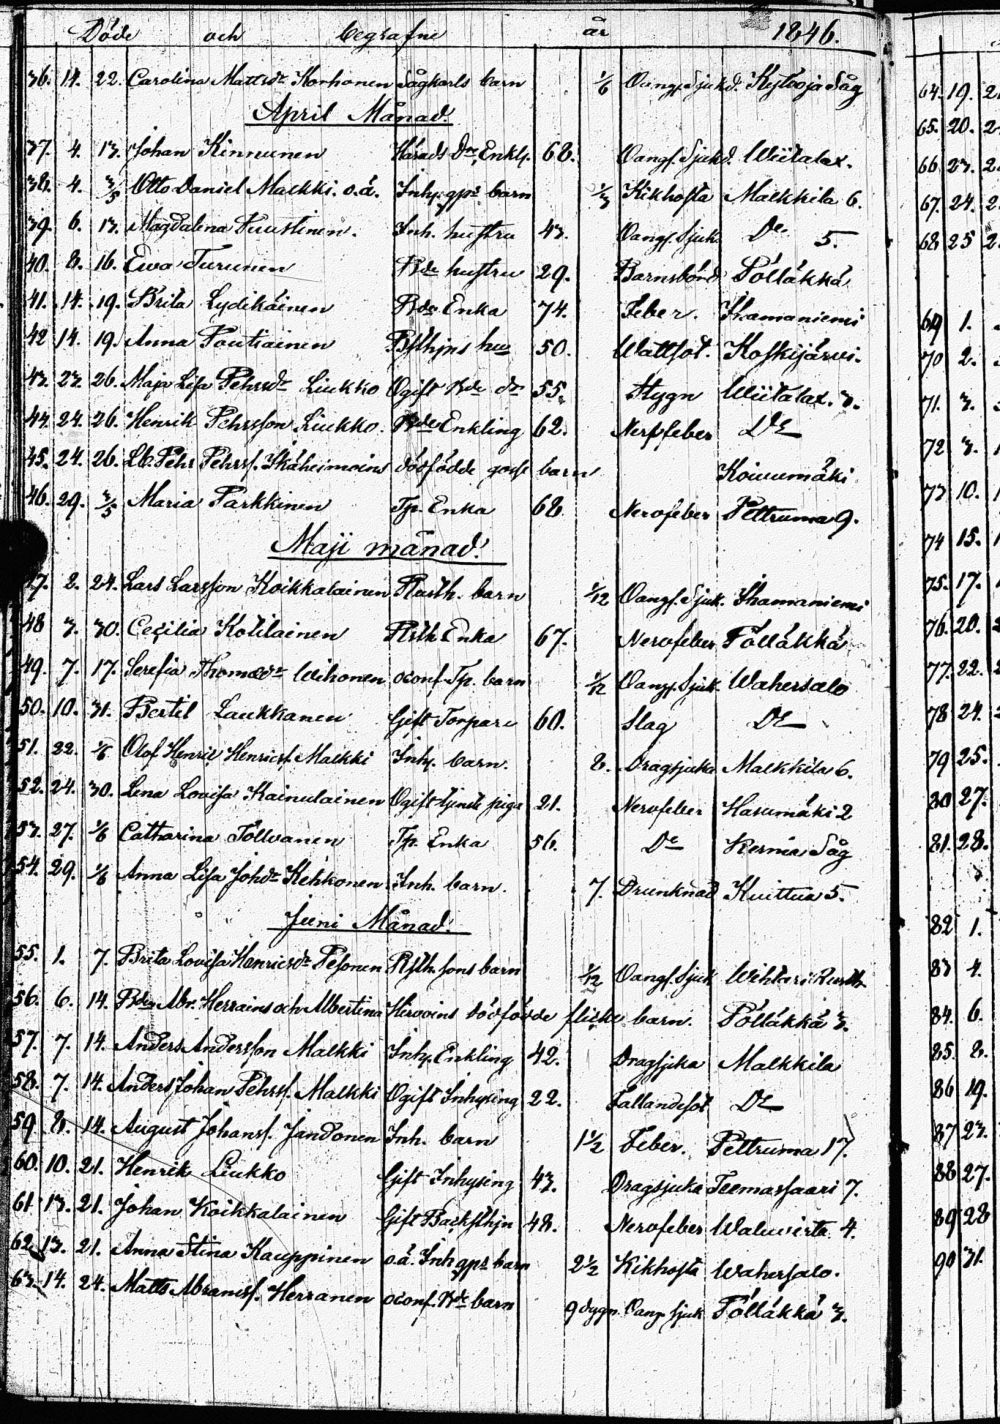 Döde och begrafne år 1846.
36. 14. 22. Carolina Mattsdr Korhonen Sågkarls barn 1/6 Oangf. Sjukd. Kytöoja Såg
April Månad.
37. 4. 13. Johan Kinnunen Härads Enkl. 68. Oangf. Sjukd. Wiitalax.
38. 4. 3/5 Otto Daniel Malkki o.ä. Inhy. gps barn 1/3 Kikhosta Malkkila 6.
39. 6. 13. Magdalena Tuustinen. Inh. hustru 43. Oangf. Sjuk. Do 5.
40. 8. 16. Ewa Turunen Bde hustru 29. Barnsbörd Pölläkkä
41. 14. 19. Brita Lydikäinen Bde Enka 74. Feber. Kramaniemi
42 14. 19. Anna Poutiainen hu 50. Wattsot. Koskijärvi.
43. 23. 26. Maja Lisa Pehrsdr Liukko Ogift Bde dr 55. Stygn Wiitalax. 3.
44. 24. 26. Henrik Pehrsson Liukko. Bde Enkling 62. Nerffeber Do
45. 24. 26. Lb. Pehr Pehrss. Ikäheimoins dödfödde gosse barn Koivumäki
46. 29. 3/5 Maria Parkkinen Tp. Enka 68 Nervfeber Pettruma 9.
Maji månad.
47. 2. 24. Lars Larsson Koikkalainen Rusth. barn 1/12 Oangf. Sjuk. Kramaniemi
48 3. 30. Cecilia Kotilainen Rsth Enka 67. Nervfeber Pölläkkä
49. 7. 17. Serefia Thomasdr Wihonen oconf. Tp. barn 1/12 Oangf. Sjuk. Wahersalo
50. 10. 31. Bertil Laukkanen Gift Torpare 60. Slag Do
51. 22. 1/6 Olof Henric Henricss. Malkki Inhy. barn. 8. Dragsjuka Malkkila 6.
52. 24. 30. Lena Lovisa Kainulainen Ogift tjenste piga 21. Nervfeber Hasumäki 2
53. 27. 1/6 Catharina Tolwanen Tp. Enka 56. Do Kermä Såg
54. 29. 1/6 Anna Lisa Johdr Kehkonen Inh. barn. 7. Drunknad Kuittua 5.
Juni Månad.
55. 1. 7. Brita Lovisa Henricsdr Pesonen Rsth. sons barn 1/12 Oangf. Sjuk Wihtari
56. 6. 14. Bdn Abr. Herrains och Albertina Hirvoins dödfödde flicke barn. Pölläkkä 3.
57. 7. 14. Anders Andersson Malkki Inhy. Enkling 42. Dragsjuka Malkkila
58. 7. 14. Anders Johan Pehrss. Malkki Ogift Inhysing 22. Fallandesot Do
59. 8. 14. August Johanss. Jandonen Inh. barn 1 1/2 Feber. Pettruma 17.
60. 10. 21. Henrik Liukko Gift Inhysing 43. Dragsjuka Teemassaari 7.
61 13. 21. Johan Koikkalainen Gift Backsthjn 48. Nervfeber Waluvirta 4.
62. 13. 21. Anna Stina Kauppinen o.ä. Inh gps barn 2 1/2 Kikhosta Wahersalo.
63. 14. 24. Matts Abramss. Herranen oconf. Bde barn 9 dygn Oang Sjuk Pölläkkä 3.
64. 19. 2
65. 20. 2
66 23. 2
67. 24. 2
68 25 2
69 1.
70 2.
71. 3.
72 3.
73 10.
74 15.
75. 17.
76. 20.
77. 22.
78 24.
79 25.
80 27.
81. 28.
82 1.
83 4.
84. 6.
85. 8.
86 19.
87 23.
88 27.
89 28
90 31.